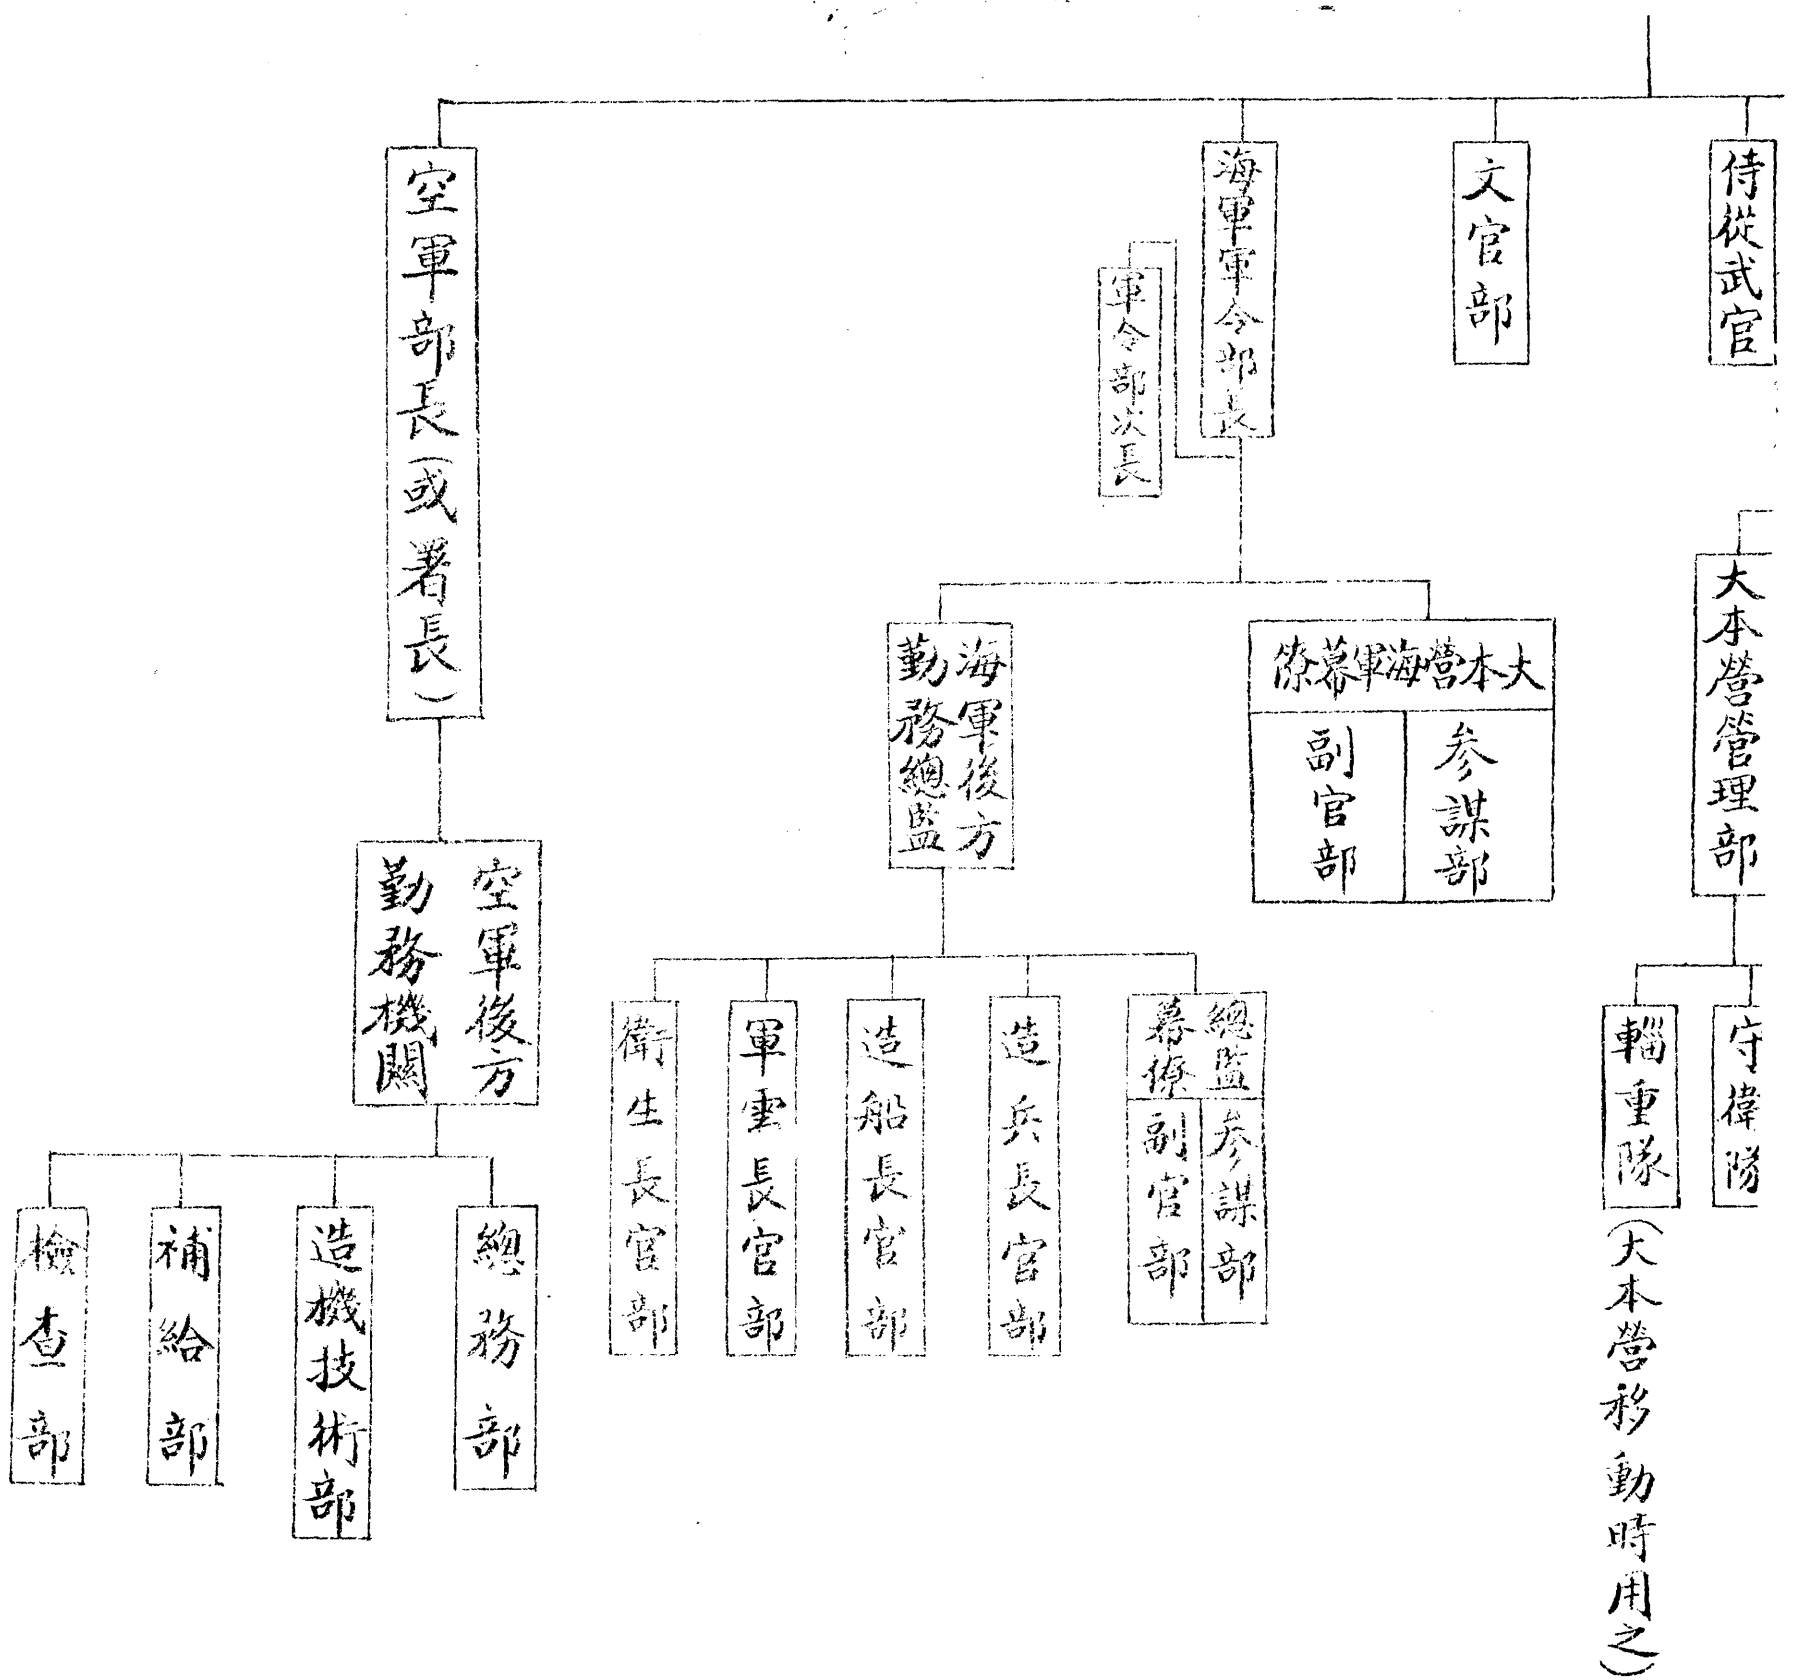 侍從武官
文官部
海軍軍令部長
軍令部次長
空軍部長(或署長)
大本營管理部
守衛隊
輜重隊(大本營移動時用之)
大本營海軍幕僚
參謀部
副官部
海軍後方
勤務總監
總監
幕僚
參謀部
副官部
造兵長官部
造船長官部
軍長官部
衛生長官部
空軍後方
勤務機關
總務部
造機技術部
補給部
檢查部